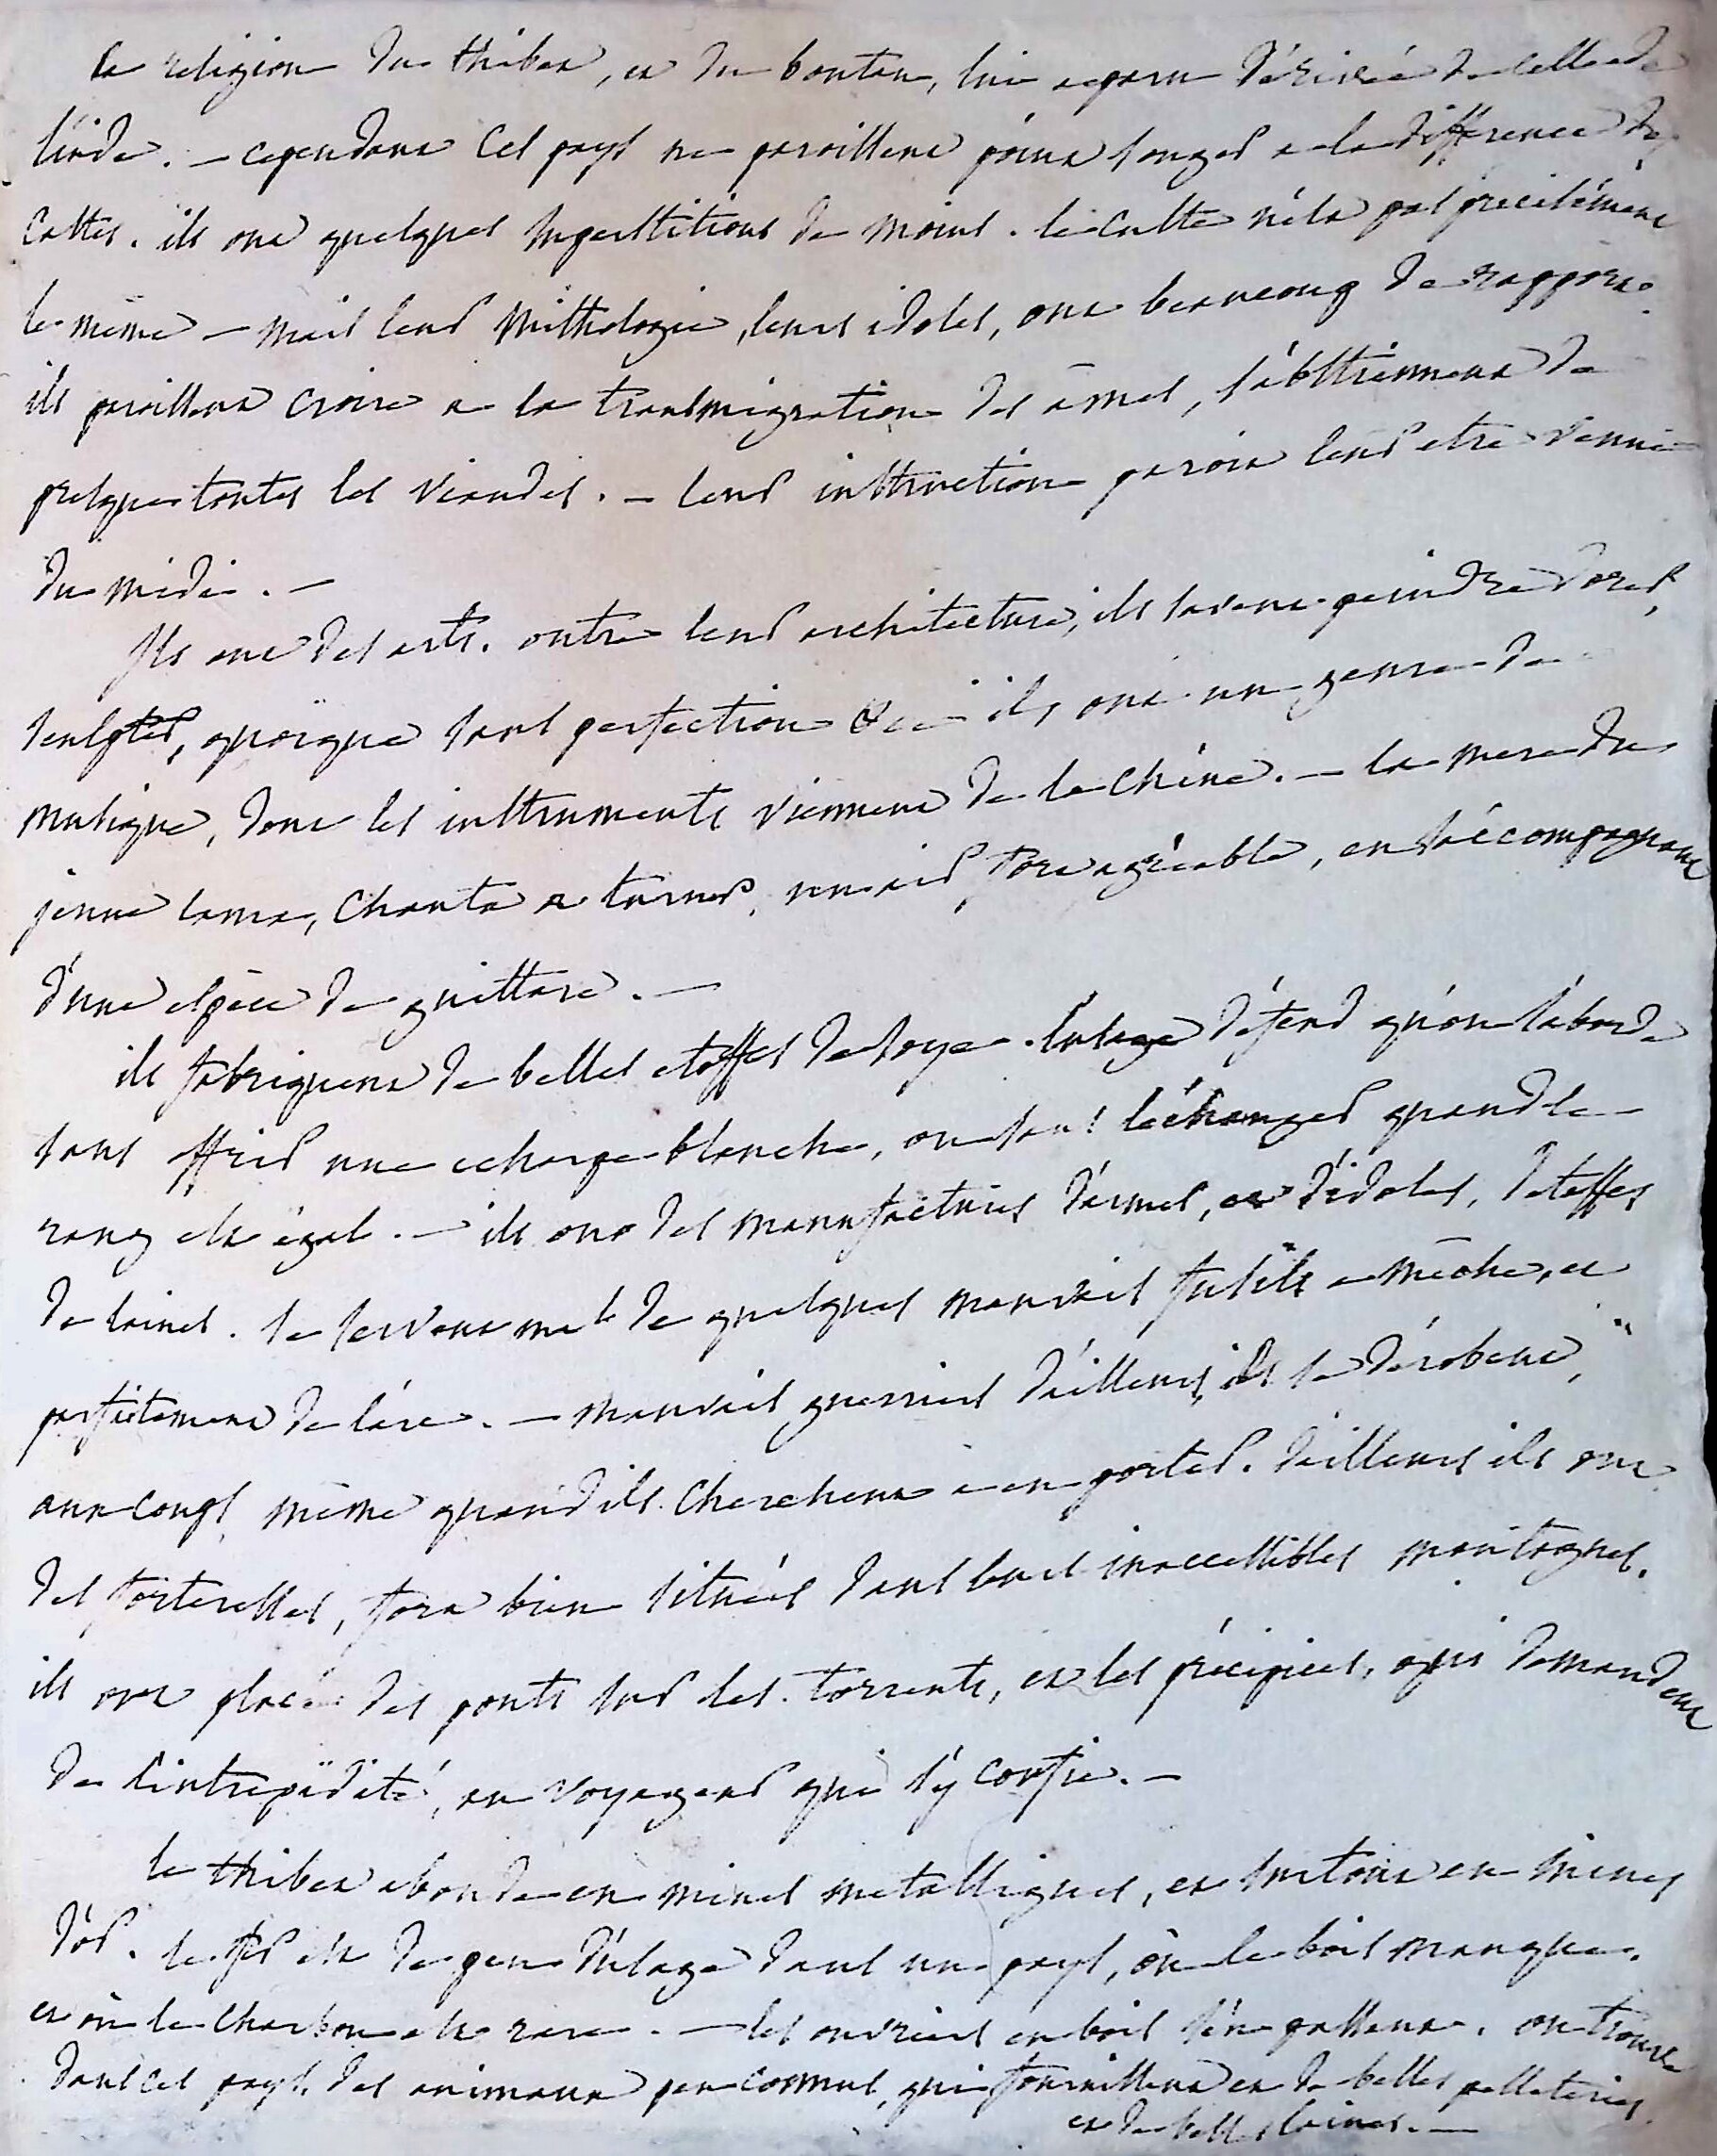 la religion du thibet, et du boutan, lui a paru dérivée de celle de
l'inde. — cependant ces pays ne paroissent point songer a la différence des
castes. ils ont quelques superstitions de moins. le culte n'est pas précisément
le même — mais leur mithologie, leurs idoles, ont beaucoup de rapport.
ils paroissent croire a la transmigration des âmes, s'abstiennent de
presque toutes les viandes. — leur instruction paroit leur etre venue
du midi. —
Ils ont des arts. outre leur architecture, ils savent peindre dorer,
sculpter, quoique sans perfection ils ont un genre de
musique, dont les instruments viennent de la Chine. — la mere du
jeune lama, chanta a turner, un air, fort agréable, en s'accompagnant
d'une espèce de guittare. —
ils fabriquent de belles etoffes de soye. l'usage défend qu'on s'aborde
sans offrir une echarpe blanche, ou sans l'échanger quand le
rang est égal. — ils ont des manufactures d'armes, et d'idoles, d'etoffes
de laines. se servent mal de quelques mauvais fusils a mèche, et
parfaitement de l'arc. — mauvais guerriers d'ailleurs, ils se dérobent,
aux coups, même quand ils cherchent a en porter. d'ailleurs ils ont
des forteresses, fort bien situées dans leurs inaccessibles montagnes.
ils ont placé des ponts sur les torrents, et les précipices, qui demandent
de l'intrepidité, au voyageur qui s'y confie. —
le thibet abonde en mines metalliques, et surtout en mines
d'or. le fer est de peu d'usage dans un pays, où le bois manque.
et où le charbon est rare. — les ouvriers en bois s'en passent. on trouve
dans ces pays, des animaux peu connus, qui fournissent et de belles pelleteries
et de belles laines. —